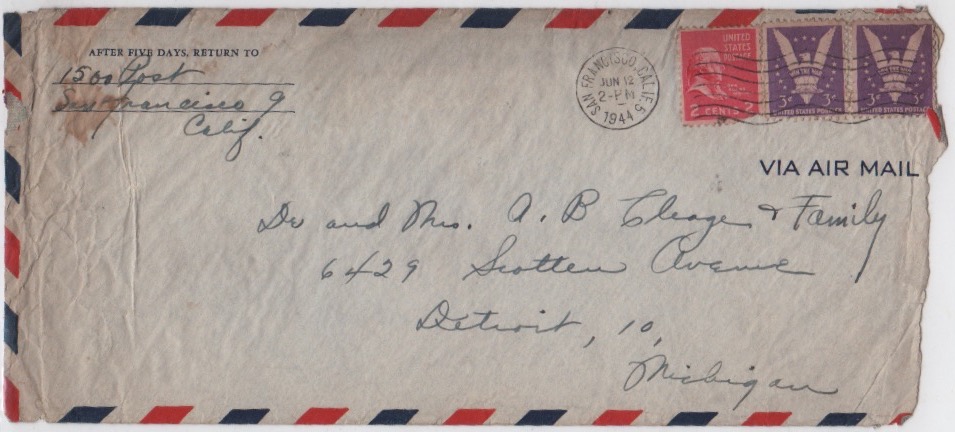 AFTER FIVE DAYS, RETURN TO
1500 Post
San Francisco 9
Calif.
SAN FRANCISCO, CALIF. 5
JUN 12
2-PM
1944
UNITED
STATES
POSTAGE
2 CENTS 2
3¢ 3¢
UNITED STATES POSTAGE
3¢ 3¢
UNITED STATES POSTAGE
VIA AIR MAIL
Dr and Mrs. A. B Cleage & Family
6429 Scotten Avenue
Detroit, 10,
Michigan